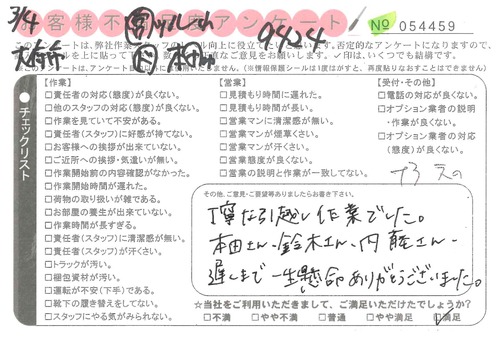 3/4
お客様不満足度アンケート
№ 054459
9424
このアンケートは、弊社作業
否定的なアンケートになりますので、
ールを上に貼って
直なご意見をお願いします。✓印は、いくつでも結構です。
いません。(※情報保護シールは1度はがすと、再度貼りなおすことはできません)
チェックリスト
【作業】
□責任者の対応(態度)が良くない。
□他のスタッフの対応(態度)が良くない。
□作業を見ていて不安がある。
□責任者(スタッフ)に好感が持てない。
□お客様への挨拶が出来ていない。
□ご近所への挨拶・気遣いが無い。
□作業開始前の内容確認がなかった。
□作業開始時間が遅れた。
□荷物の取り扱いが雑である。
□お部屋の養生が出来ていない。
□作業時間が長すぎる。
□責任者(スタッフ)に清潔感が無い。
□責任者(スタッフ)が汗くさい。
□トラックが汚い。
□梱包資材が汚い。
□運転が不安(下手)である。
□靴下の履き替えをしてない。
□スタッフにやる気がみられない。
【営業】
□見積もり時間に遅れた。
□見積もり時間が長い。
□営業マンに清潔感が無い。
□営業マンが煙草くさい。
□営業マンが汗くさい。
□営業態度が良くない。
□営業の説明と作業が一致してない。
【受付・その他】
□電話の対応が良くない。
□オプション業者の説明
・作業が良くない。
□オプション業者の対応
(態度)が良くない。
その他、ご意見・ご要望等ありましたらお書き下さい。
丁寧な引越し作業でした。
本田さん・鈴木さん・内藤さん・
遅くまで一生懸命ありがとうございました。
★当社をご利用いただきまして、ご満足いただけたでしょうか?
□不満 □やや不満 □普通 □やや満足 ☑満足